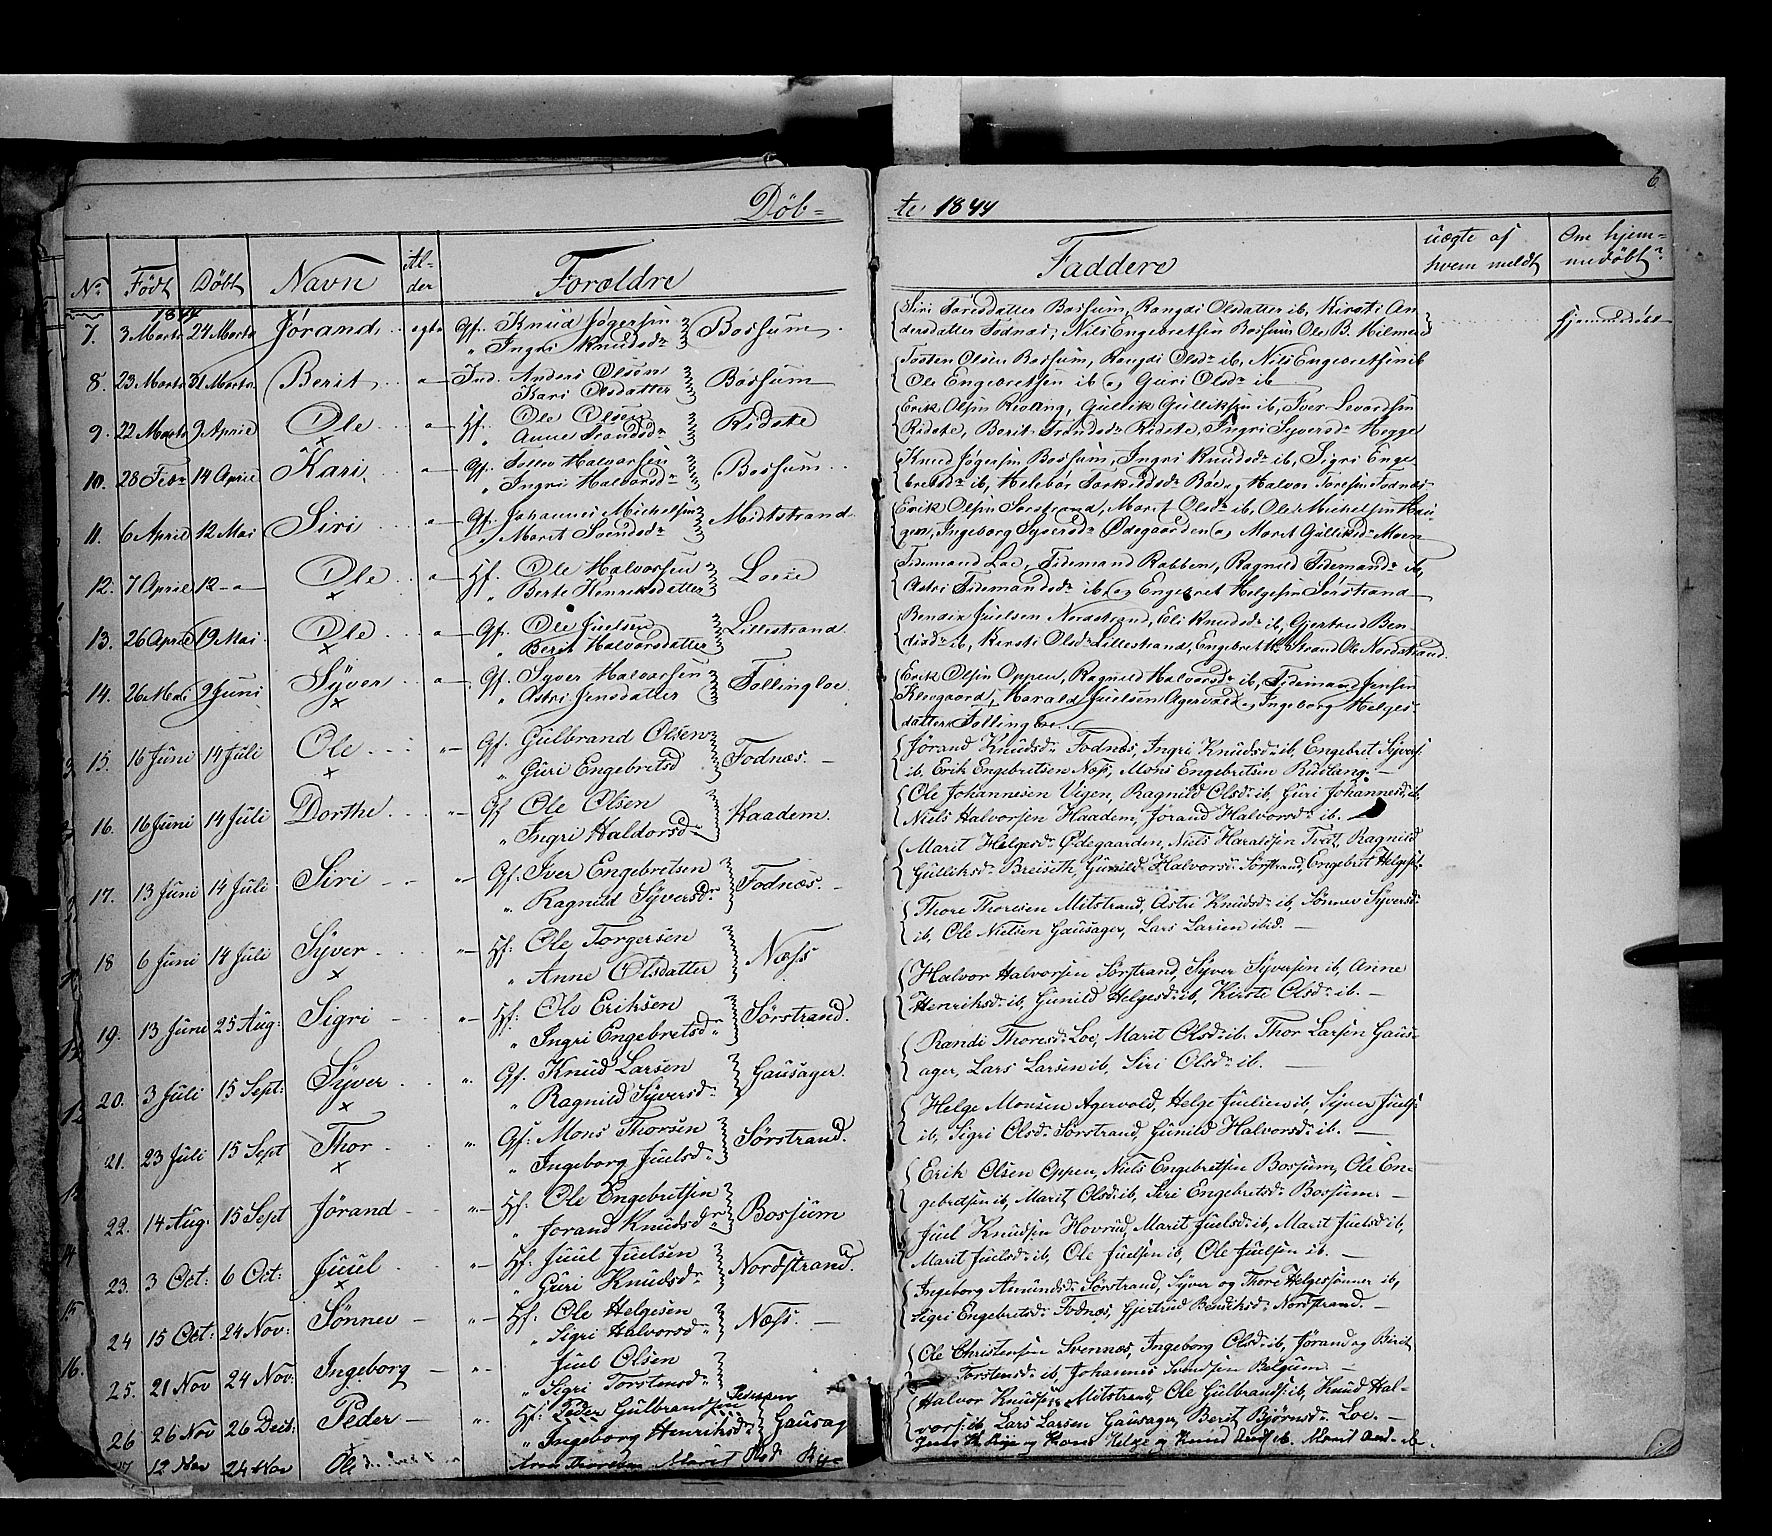 Døb= te 1844
6
No Født Døbt Navn Al- Forældre Faddere uægte af Om hjem=
der hvem meldt medøbt?
1844
7. 3 Marts 24 Marts Jórand. ægte Gf. Knud Jógersen Bossum.
" Ingri Knudsdr
Siri Toresdatter Bossum, Rangdi Olsdatter ib, Kirsti An
dersdatter Fodnæs, Nils Engebretsen Bossum Ole B.
hjemmedøbt
8. 23 Marts 31 Marts Berit Ind. Anders Olsen Bossum
Kari Olsdatter
Tosten Olsen Bossum, Rangdi Olsdr ib, Nils Engebretsen ib
Ole Engebretsen ib og Guri Olsdr ib
9. 22 Marts 9 April Ole Hf. Ole Olsen Ridste
x " Anne Trondsdr
Erik Olsen Rudlang, Gullik Gulliksen ib, Iver Levordsen
Ridste, Berit Trondsdr Ridste, Ingri Syversdr Hegge
10. 28 Febr 14 April Kari Gf. Tollev Halvorsen Bossum
" Ingri Halvorsdr
Knud Jógersen Bossum, Ingri Knudsdr ib, Sigri Enge
bretsdr ib, Halvor Toresen Fodnæs
11. 6 April 12 Mai Siri Gf. Johannes Michelsen Midtstrand
" Marit Svendsdr
Erik Olsen Sorstrand, Marit Olsdr ib, Ole Michelsen Hau-
gen, Ingeborg Syversdr Ødegaarden og Marit Gulliksdr Moen
12. 7 April 12 Ole Hf. Ole Halvorsen Loeie
x " Berte Henriksdatter
Tidemand Loe, Tidemand Rabben, Ragnild Tidemandsdr ib,
Astri Tidemandsdr ib og Engebret Helgesen Sorstrand
13. 26 April 19 Mai Ole Gf. Ole Juelsen Lillestrand
x " Berit Halvorsdatter
Bendix Juelsen Nordstrand, Eli Knudsdr ib, Gjertrud Ben-
dixdr ib, Kirsti Olsdr Lillestrand, Engebret Strand Ole Nordstrand.
14. 26 Mai 9 Juni Syver Gf. Syver Halvorsen Follingloe
x " Astri Jensdatter
Erik Olsen Oppen, Ragnild Halvorsdr ib, Tidemand Jensen
Klevgaard, Harald Juelsen Agervold og Ingeborg Helges-
datter Follingloe
15. 16 Juni 14 Juli Ole Gf. Gulbrand Olsen Fodnæs.
x " Guri Engebretsd
Jórand Knudsdr Fodnæs, Ingri Knudsdr ib, Engebret Syvers.
ib, Erik Engebretsen Næss, Mons Engebretsen Rudlang.
16. 16 Juni 14 Juli Dorthe Gf Ole Olsen Haadem
" Ingri Haldorsdr
Ole Johannesen Vigen, Ragnild Olsdr ib, Guri Johannesd. ib,
Niels Halvorsen Haadem, Jórand Halvorsdr ib.
17. 13 Juni 14 Juli Siri Gf. Iver Engebretsen Fodnæs.
" Ragnild Syversdr
Marit Helgesdr Ødegaarden, Niels Haraldsen Tvæt, Ragnild
Gulliksdr Breiseth, Gunild Halvorsd Sørstrand, Engebret Helgesen
18 6 Juni 14 Juli Syver Hf. Ole Torgersen Næss
x " Anne Olsdatter
Thore Thoresen Mitstrand, Astri Knudsdr ib, Sønnev Syversdr
ib, Ole Nielsen Gausager, Lars Larsen ibid.
19. 13 Juni 25 Aug: Sigri Hf: Ole Eriksen Sørstrand.
" Ingri Engebretsdr
Halvor Halvorsen Sørstrand, Syver Syversen ib, Anne
Henriksdr ib, Gunild Helgesdr ib, Kirsti Olsdr ib.
20. 3 Juli 15 Sept: Syver Gf. Knud Larsen Gausager.
x " Ragnild Syversdr
Randi Thoresdr Loe, Marit Olsdr ib. Thor Larsen Gaus-
ager, Lars Larsen ib, Siri Olsdr ib.
21. 23 Juli 15 Sept Thor Gf: Mons Thorsen Sørstrand.
x " Ingeborg Juelsdr
Helge Monsen Agervold, Helge Juelsen ib, Syver Juels.
ib, Sigri Olsdr Sørstrand, Gunild Halvorsdr ib.
22. 14 Aug: 15 Sept Jørand Hf: Ole Engebretsen Bossum
" Jorand Knudsdr
Erik Olsen Oppen, Niels Engebretsen Bossum, Ole En-
gebretsen ib, Marit Olsdr ib, Siri Engebretsdr Bossum.
23. 3 Oct: 6 Oct: Juul Hf: Juul Juelsen Nordstrand.
x " Guri Knudsdr
Juel Knudsen Hovrud, Marit Juelsdr ib, Marit Juelsdr ib,
Marit Juelsdr ib, Ole Juelsen ib, Ole Juelsen ib.
24 15 Oct: 24 Nov: Sønnev Hf: Ole Helgesen Næss.
" Sigri Halvorsdr
Ingeborg Amundsdr Sørstrand, Syver og Thore Helgessønner ib,
Sigri Engebretsdr Fodnæs, Gjertrud Bendiksdr Nordstrand.
25. 21 Nov 24 Nov: Ingeborg Juel Olsen
" Sigri Torstensdr
Ole Christensen Svennæs, Ingeborg Olsdr ib, Jørand og Berit
Torstensdr ib, Johannes Belgum
26 26 Nov 26 Decb: Peder Hf: Peder Gulbrandsen Gausag
" Ingeborg Henriksdr
Halvor Knudsen Mitstrand, Ole Gulbrands. ib, Knud Hal-
vors. ib Lars Larsen Gausager, Berit Bjørnsdr Loe.
12 Nov 24 Nov Ole Arne Thoresen Marit Olsd
Helge og Knud ib. Marit